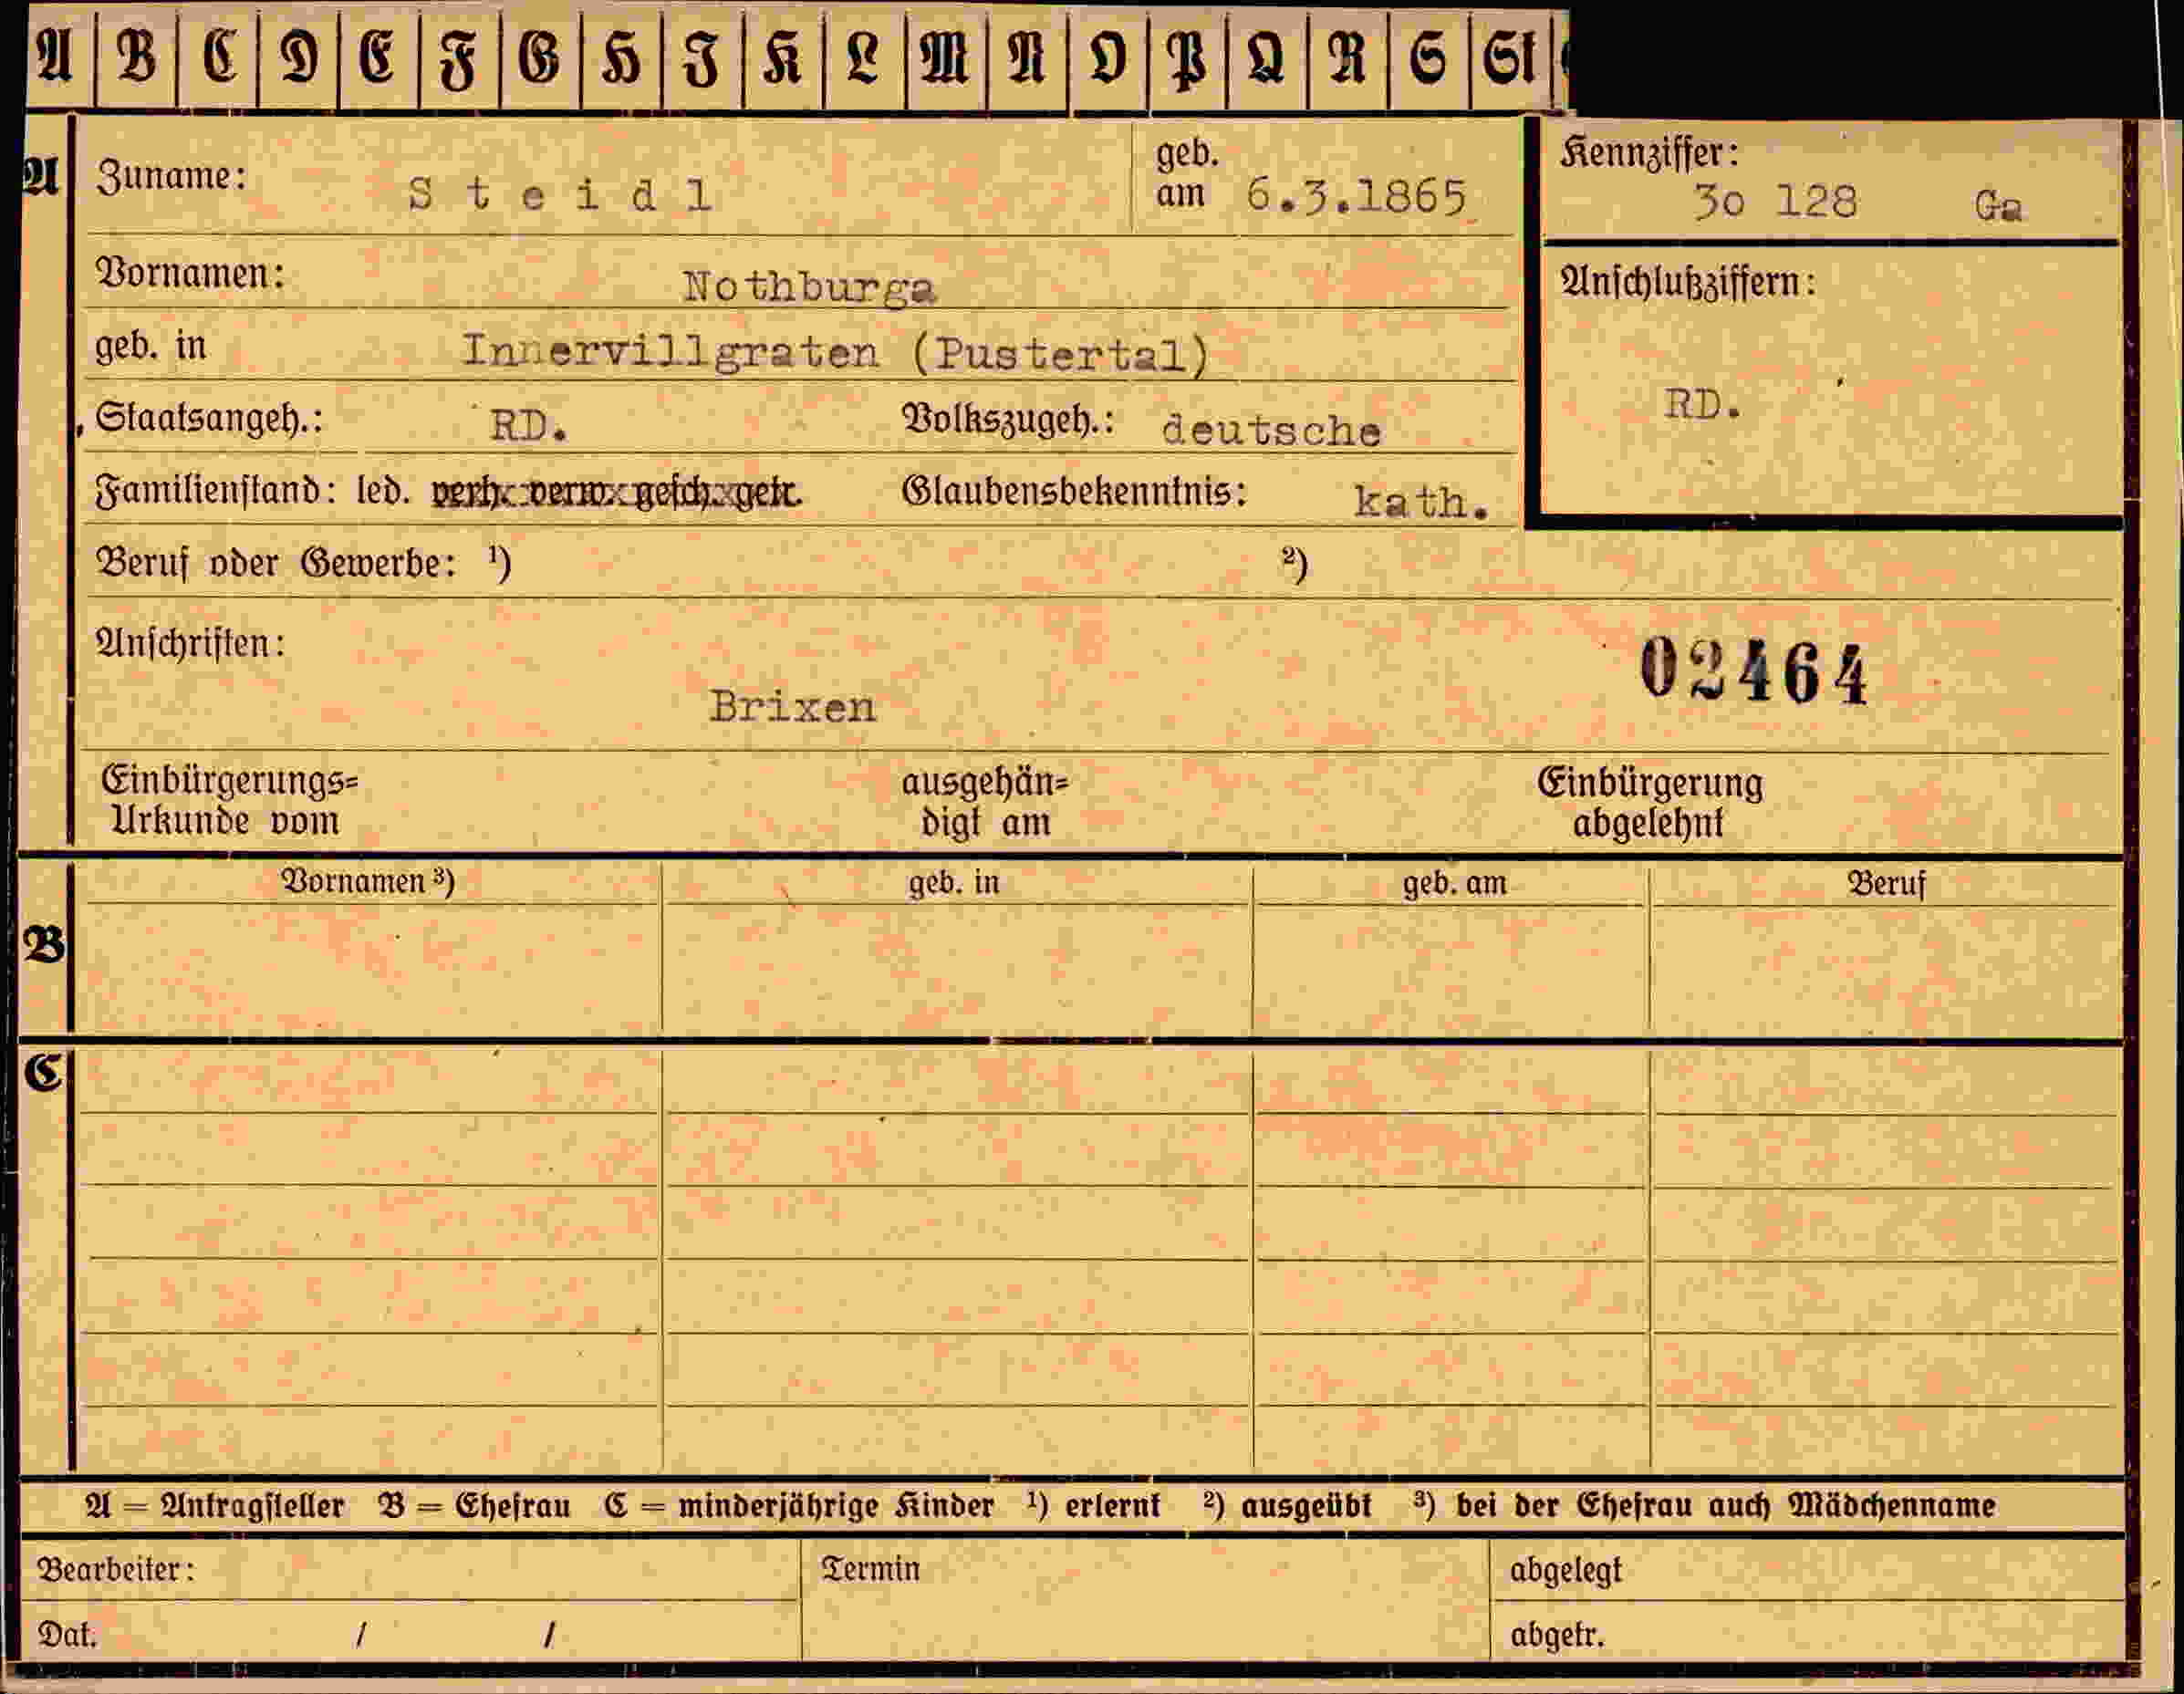 A B C D E F G H I K L M N O P Q R S St
A Zuname: Steidl geb. am 6.3.1865 Kennziffer: 30 128 Ga
Vornamen: Nothburga Anschlußziffern:
geb. in Innervillgraten (Pustertal)
Staatsangeh.: RD. Volkszugeh.: deutsche RD.
Familienstand: led. verh. verw. gesch. getr. Glaubensbekenntnis: kath.
Beruf oder Gewerbe: ¹) ²)
Anschriften: 02464
Brixen
Einbürgerungs= ausgehän= Einbürgerung
Urkunde vom digt am abgelehnt
Vornamen ³) geb. in geb. am Beruf
B
C
A = Antragsteller B = Ehefrau C = minderjährige Kinder ¹) erlernt ²) ausgeübt ³) bei der Ehefrau auch Mädchenname
Bearbeiter: Termin abgelegt
Dat. / / abgetr.